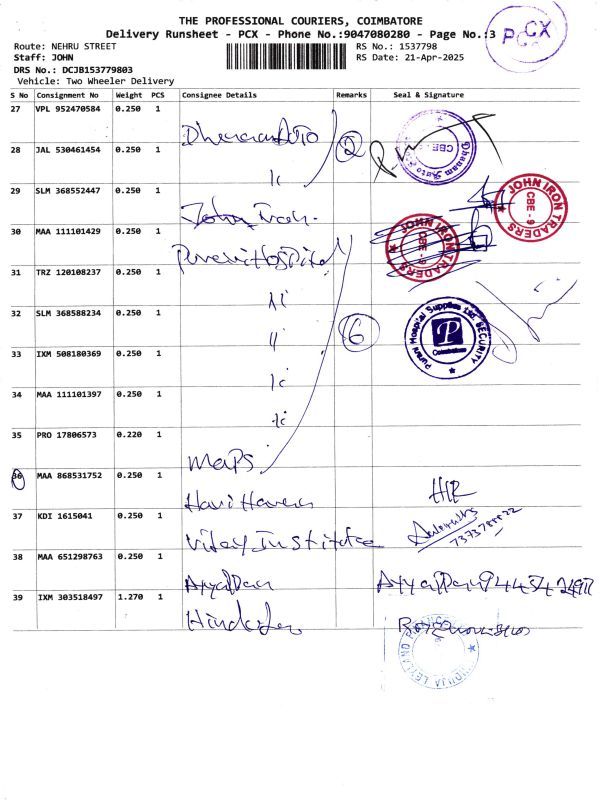 THE PROFESSIONAL COURIERS, COIMBATORE
Delivery Runsheet - PCX - Phone No.:9047080280 - Page No.:3
PCX
Route: NEHRU STREET
RS No.: 1537798
Staff: JOHN
RS Date: 21-Apr-2025
DRS No.: DCJB153779803
Vehicle: Two Wheeler Delivery
S No Consignment No Weight PCS Consignee Details Remarks Seal & Signature
27 VPL 952470584 0.250 1
2
Dhanam Auto CBE
28 JAL 530461454 0.250 1
29 SLM 368552447 0.250 1 John Iron
JOHN IRON TRADERS CBE - 9
30 MAA 111101429 0.250 1 Hospital
JOHN IRON TRADERS CBE - 9
31 TRZ 120108237 0.250 1
32 SLM 368588234 0.250 1
6
Purani Hospital Supplies Ltd. SECURITY P Coimbatore
33 IXM 508180369 0.250 1
34 MAA 111101397 0.250 1
35 PRO 17806573 0.220 1 maps
36 MAA 868531752 0.250 1
37 KDI 1615041 0.250 1 Vijay Institute
7373788822
38 MAA 651298763 0.250 1 Ayyappan
Ayyappan
39 IXM 303518497 1.270 1
HINDUJA LEYLAND